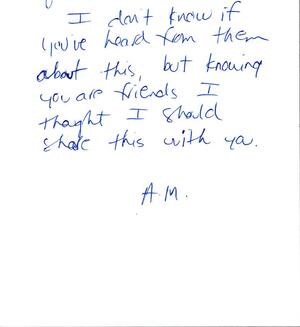 I don't know if
you've heard from them
about this, but knowing
you are friends I
thought I should
share this with you.
A.M.